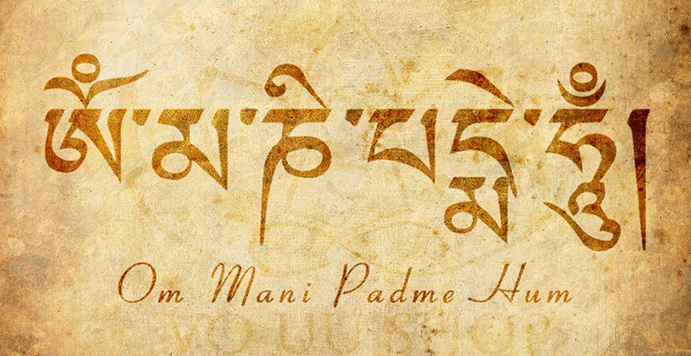 ༀ་མ་ཎི་པདྨེ་ཧཱུྃ།
Om Mani Padme Hum